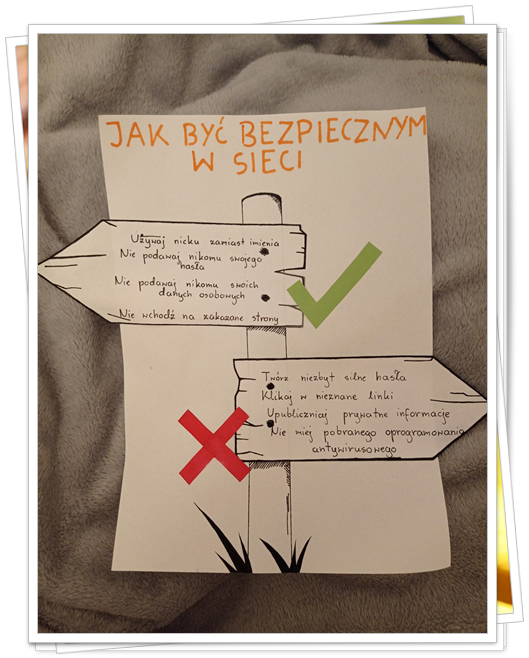 JAK BYĆ BEZPIECZNYM
W SIECI
Używaj nicku zamiast imienia
Nie podawaj nikomu swojego
hasła
Nie podawaj nikomu swoich
danych osobowych
Nie wchodź na zakazane strony
Twórz niezbyt silne hasła
Klikaj w nieznane linki
Upubliczniaj prywatne informacje
Nie miej pobranego oprogramowania
antywirusowego